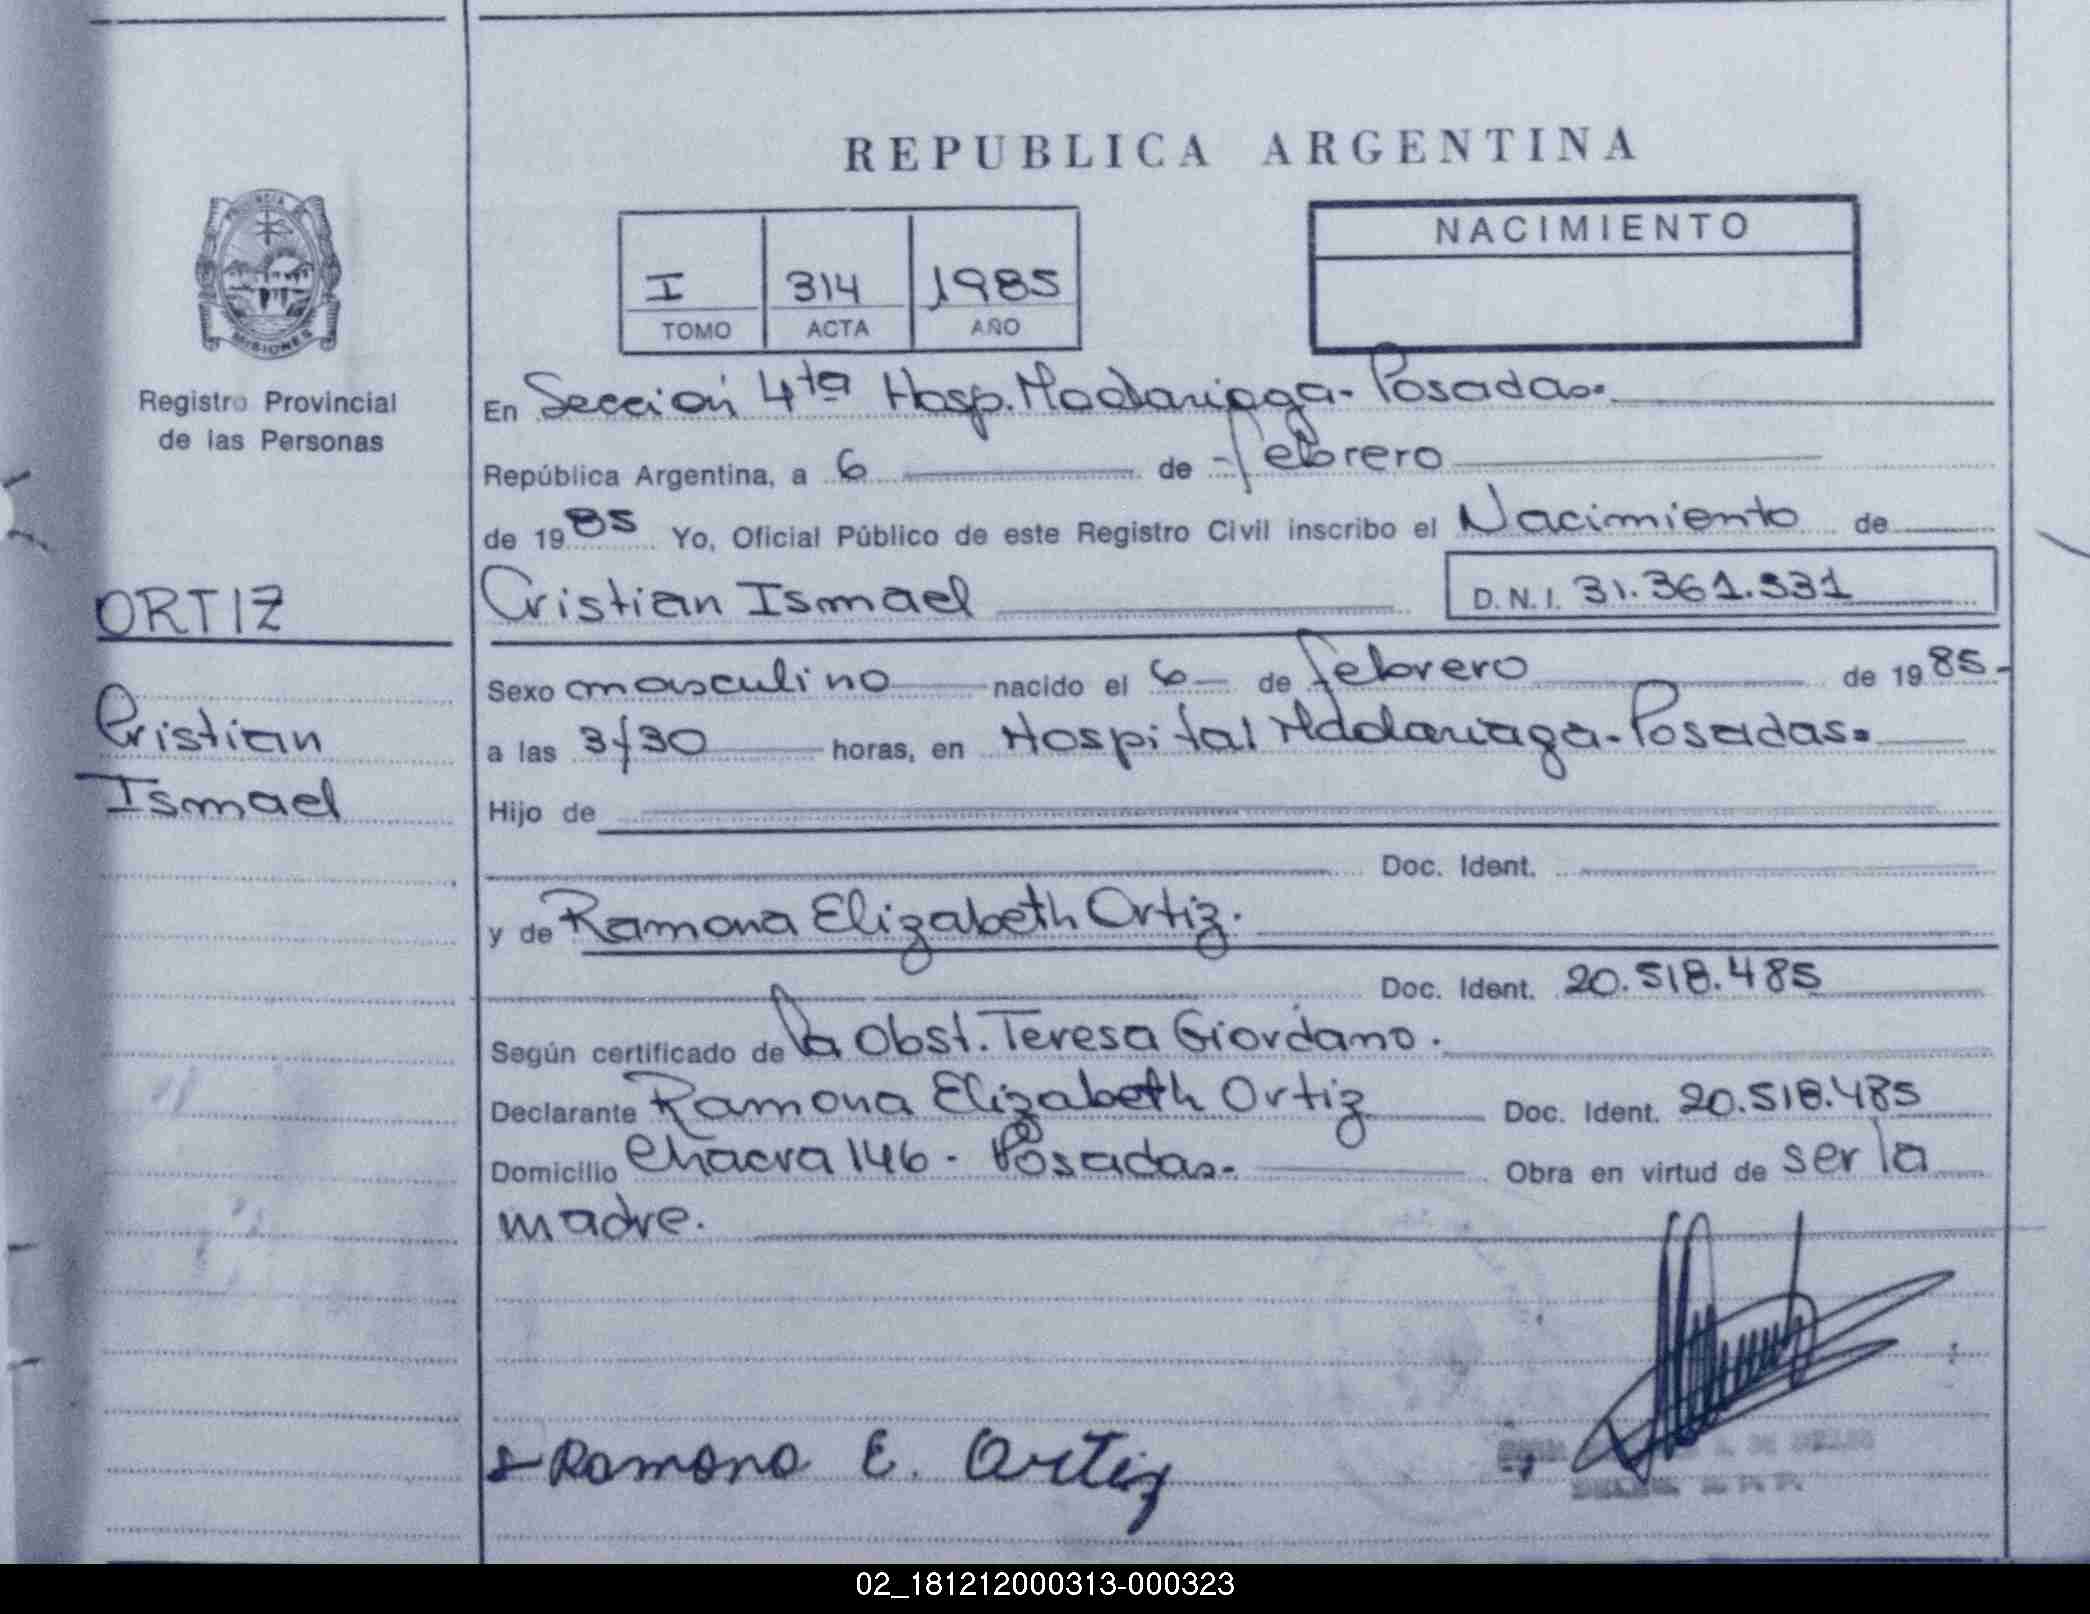 REPUBLICA ARGENTINA
NACIMIENTO
I 314 1985
TOMO ACTA AÑO
PROVINCIA
MISIONES
Registro Provincial
de las Personas
En Sección 4ta Hosp. Madariaga - Posadas.
República Argentina, a 6 de febrero
de 1985 Yo, Oficial Público de este Registro Civil inscribo el Nacimiento de
ORTIZ
Cristian Ismael D.N.I. 31.361.531
Sexo masculino nacido el 6 de febrero de 1985.-
Cristian
a las 3/30 horas, en Hospital Madariaga - Posadas.
Ismael
Hijo de
Doc. Ident.
y de Ramona Elizabeth Ortiz.
Doc. Ident. 20.518.485
Según certificado de la Obst. Teresa Giordano.
Declarante Ramona Elizabeth Ortiz Doc. Ident. 20.518.485
Domicilio Chacra 146 - Posadas.- Obra en virtud de ser la
madre.
Ramona E. Ortiz
02_181212000313-000323